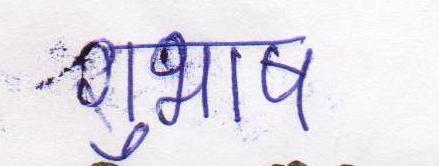 शुभाष